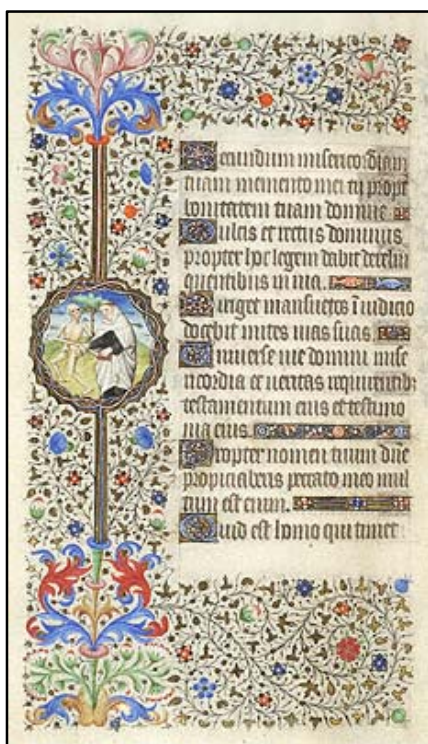 Secundum misericordiam
tuam memento mei tu propt
bonitatem tuam domine
Dulcis et rectus dominus
propter hoc legem dabit delin
quentibus in uia.
Diriget mansuetos ī iudicio
docebit mites uias suas
Uniuerse uie domini mise
ricordia et ueritas requirentib
testamentum eius et testimo
nia eius.
Propter nomen tuum dñe
propiciaberis peccato meo mul
tum est enim.
Quis est homo qui timet